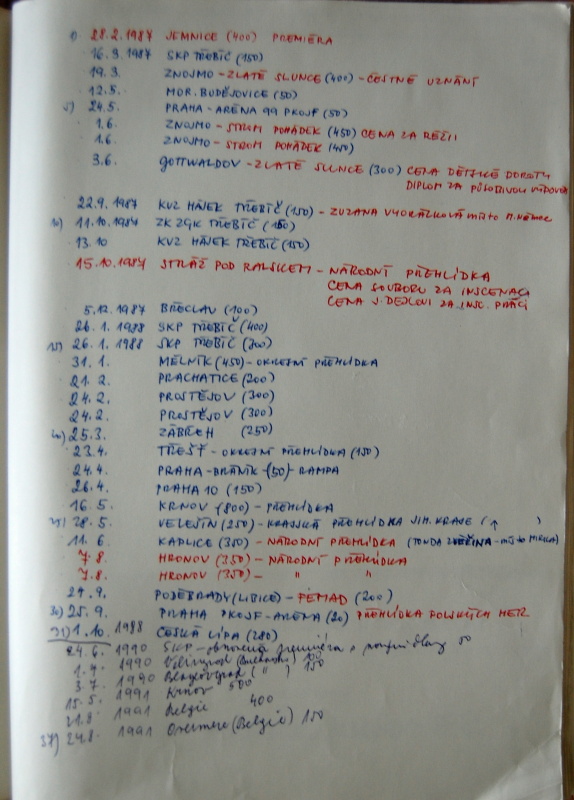 1) 28.2.1987 JEMNICE (400) PREMIÉRA
16.3.1987 SKP TŘEBÍČ (150)
19.3. ZNOJMO - ZLATÉ SLUNCE (400) - ČESTNÉ UZNÁNÍ
12.5. MOR. BUDĚJOVICE (50)
5) 24.5. PRAHA - ARÉNA 99 PKOJF (50)
1.6. ZNOJMO - STROM POHÁDEK (450) CENA ZA REŽII
1.6. ZNOJMO - STROM POHÁDEK (450)
3.6. GOTTWALDOV - ZLATÉ SLUNCE (300) CENA DĚTSKÉ POROTY
DIPLOM ZA PŮSOBIVOU VÝPOVĚĎ
22.9.1987 KVZ HÁJEK TŘEBÍČ (150) - ZUZANA místo
10) 11.10.1987 ZK ZGK TŘEBÍČ (150)
13.10 KVZ HÁJEK TŘEBÍČ (150)
15.10.1987 STRÁŽ POD RALSKEM - NÁRODNÍ PŘEHLÍDKA
CENA SOUBORU ZA INSCENACI
CENA J. DEJLOVI ZA INSC. PRÁCI
5.12.1987 BŘECLAV (100)
26.1.1988 SKP TŘEBÍČ (400)
15) 26.1.1988 SKP TŘEBÍČ (300)
31.1. MĚLNÍK (450) - OKRESNÍ PŘEHLÍDKA
21.2. PRACHATICE (200)
24.2. PROSTĚJOV (300)
24.2. PROSTĚJOV (300)
20) 25.3. ZÁBŘEH (250)
23.4. TŘEŠŤ - OKRESNÍ PŘEHLÍDKA (150)
24.4. PRAHA - BRANÍK - (50) - RAMPA
26.4. PRAHA 10 (150)
16.5. KRNOV (800) - PŘEHLÍDKA
25) 28.5. VELEŠÍN (250) - KRAJSKÁ PŘEHLÍDKA JIH. KRAJE ( )
11.6. KAPLICE (350) - NÁRODNÍ PŘEHLÍDKA (TONDA místo MIRKA)
7.8. HRONOV (350) - NÁRODNÍ PŘEHLÍDKA
7.8. HRONOV (350) - " "
24.9. PODĚBRADY (LIBICE) - FEMAD (200)
30) 25.9. PRAHA PKOJF - ARÉNA (20) PŘEHLÍDKA POLSKÝCH HER
31) 1.10. 1988 ČESKÁ LÍPA (280)
24.6. 1990 SKP - obnovená premiéra s 50
1.7. 1990 100
3.7. 1990 Blagoevgrad ( " ) 150
15.5. 1991 Krnov 500
21.8 1991 Belgie 400
37) 24.8. 1991 (Belgie) 150